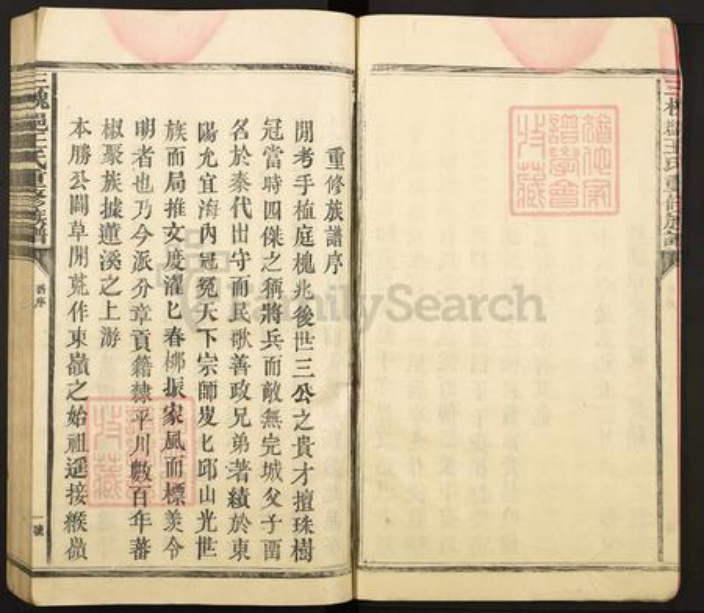 重修族譜序
閒考手植庭槐兆後世三公之貴才擅珠樹
冠當時四傑之稱將兵而敵無完城父子面
名於秦代出守而民歌善政兄弟著績於東
陽允宜海内冠冕天下宗師岌匕邱山光世
族而局推文度濯匕春栁振家風而標羙令
明者也乃今派分章貢籍隸平川數百年蕃
椒聚族據蓮溪之上游
本勝公闢草開荒作東嶺之始祖遥接緱嶺
三槐邑王氏重修族譜
舊序
一號
FamilySearch